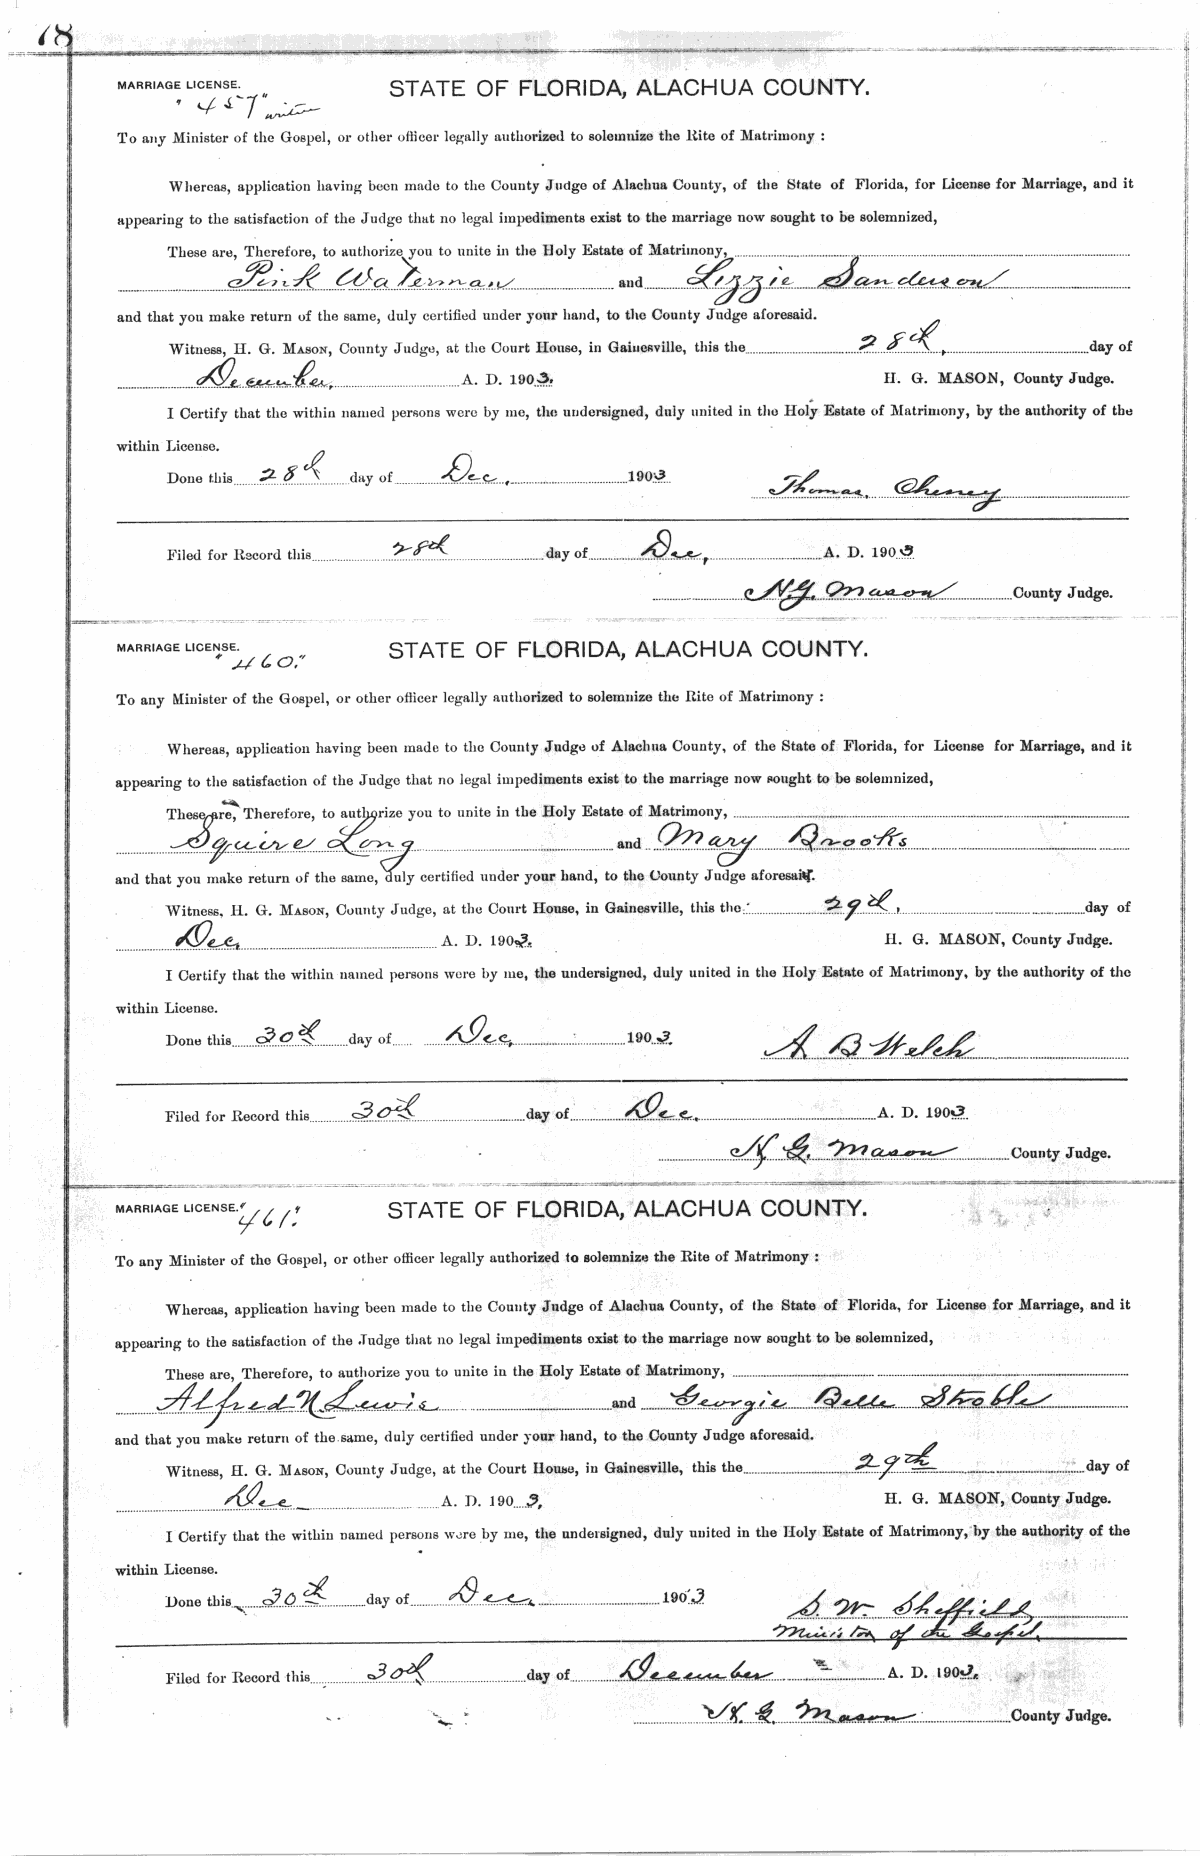 78
MARRIAGE LICENSE. STATE OF FLORIDA, ALACHUA COUNTY.
"457"
To any Minister of the Gospel, or other officer legally authorized to solemnize the Rite of Matrimony :
Whereas, application having been made to the County Judge of Alachua County, of the State of Florida, for License for Marriage, and it
appearing to the satisfaction of the Judge that no legal impediments exist to the marriage now sought to be solemnized,
These are, Therefore, to authorize you to unite in the Holy Estate of Matrimony,
Pink Waterman and Lizzie Sanderson
and that you make return of the same, duly certified under your hand, to the County Judge aforesaid.
Witness, H. G. MASON, County Judge, at the Court House, in Gainesville, this the 28th, day of
December, A. D. 1903. H. G. MASON, County Judge.
I Certify that the within named persons were by me, the undersigned, duly united in the Holy Estate of Matrimony, by the authority of the
within License.
Done this 28th day of Dec, 1903 Thomas Cheney
Filed for Record this 28th day of Dec, A. D. 1903
H. G. Mason County Judge.
MARRIAGE LICENSE. STATE OF FLORIDA, ALACHUA COUNTY.
"460."
To any Minister of the Gospel, or other officer legally authorized to solemnize the Rite of Matrimony :
Whereas, application having been made to the County Judge of Alachua County, of the State of Florida, for License for Marriage, and it
appearing to the satisfaction of the Judge that no legal impediments exist to the marriage now sought to be solemnized,
These are, Therefore, to authorize you to unite in the Holy Estate of Matrimony,
Squire Long and Mary Brooks
and that you make return of the same, duly certified under your hand, to the County Judge aforesaid.
Witness, H. G. MASON, County Judge, at the Court House, in Gainesville, this the 29th, day of
Dec, A. D. 1903. H. G. MASON, County Judge.
I Certify that the within named persons were by me, the undersigned, duly united in the Holy Estate of Matrimony, by the authority of the
within License.
Done this 30th day of Dec, 1903. A B Welch
Filed for Record this 30th day of Dec. A. D. 1903
H. G. Mason County Judge.
MARRIAGE LICENSE. STATE OF FLORIDA, ALACHUA COUNTY.
"461."
To any Minister of the Gospel, or other officer legally authorized to solemnize the Rite of Matrimony :
Whereas, application having been made to the County Judge of Alachua County, of the State of Florida, for License for Marriage, and it
appearing to the satisfaction of the Judge that no legal impediments exist to the marriage now sought to be solemnized,
These are, Therefore, to authorize you to unite in the Holy Estate of Matrimony,
Alfred N. Lewis and Georgie Belle Stroble
and that you make return of the same, duly certified under your hand, to the County Judge aforesaid.
Witness, H. G. MASON, County Judge, at the Court House, in Gainesville, this the 29th day of
Dec A. D. 1903. H. G. MASON, County Judge.
I Certify that the within named persons were by me, the undersigned, duly united in the Holy Estate of Matrimony, by the authority of the
within License.
Done this 30th day of Dec. 1903 S. W. Sheffield
Minister of the Gospel.
Filed for Record this 30th day of December A. D. 1903.
H. G. Mason County Judge.